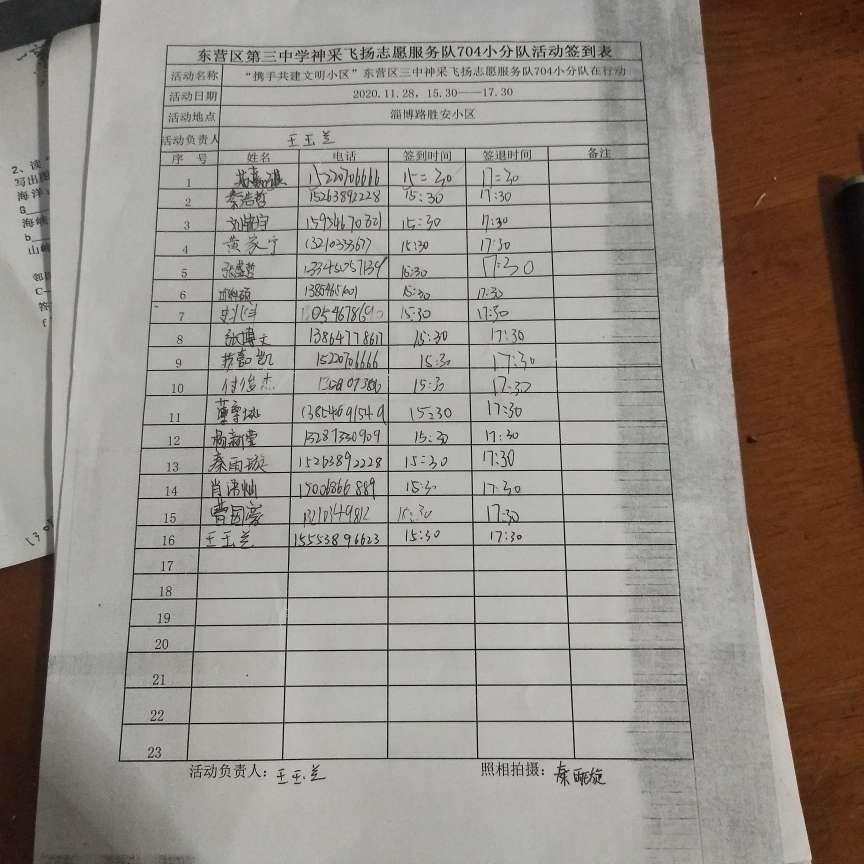 东营区第三中学神采飞扬志愿服务队704小分队活动签到表
活动名称 “携手共建文明小区”东营区三中神采飞扬志愿服务队704小分队在行动
活动日期 2020.11.28，15.30——17.30
活动地点 淄博路胜安小区
活动负责人 王玉兰
序 号 姓名 电话 签到时间 签退时间 备注
1 15220706666 15:30 17:30
2 秦浩哲 15263892228 15:30 17:30
3 15:30 17:30
4 黄家宁 13210333677 15:30 17:30
5 张盛哲 13345057139 15:30 17:30
6 15:30 17:30
7 15:30 17:30
8 张博文 13864778617 15:30 17:30
9 苏嘉凯 15220706666 15:30 17:30
10 付俊杰 15:30 17:30
11 13854691549 15:30 17:30
12 杨新莹 15287330909 15:30 17:30
13 秦雨璇 15263892228 15:30 17:30
14 15:30 17:30
15 曹国豪 15:30 17:30
16 王玉兰 15553896623 15:30 17:30
17
18
19
20
21
22
23
活动负责人：王玉兰 照相拍摄：秦雨璇
2、读
写出图
海洋
a
海峡
b
山峰